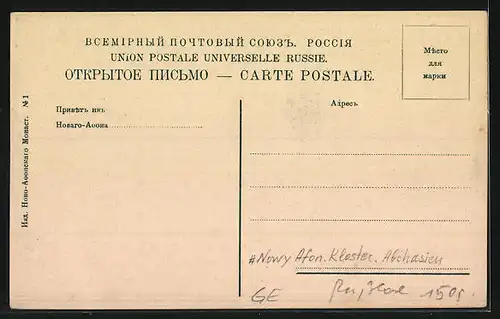 ВСЕМІРНЫЙ ПОЧТОВЫЙ СОЮЗЪ. РОССІЯ
UNION POSTALE UNIVERSELLE RUSSIE.
ОТКРЫТОЕ ПИСЬМО — CARTE POSTALE.
Мѣсто
для
марки
Привѣтъ изъ
Новаго-Аѳона
Адресъ
Изд. Ново-Аѳонскаго Монаст. №1
#Nowy Afon. Kloster. Abchasien
GE 150,-